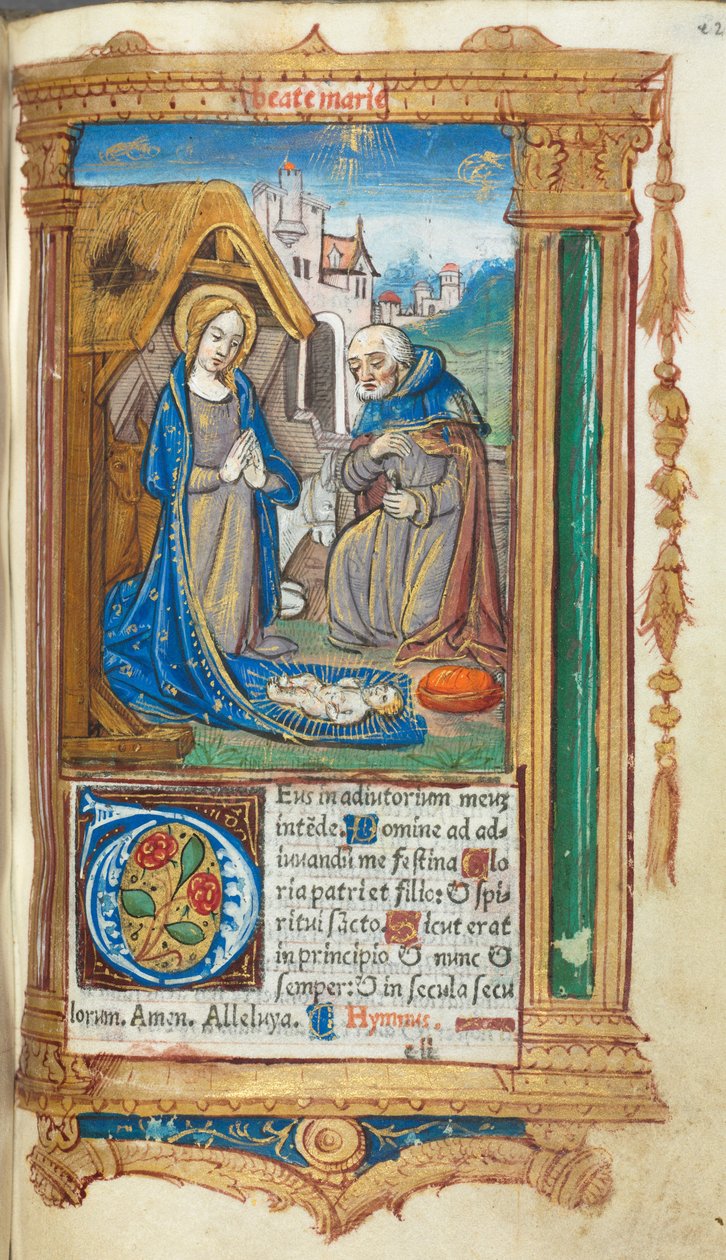 beate marie
Deus in adiutorium meuʒ
intẽde. Domine ad ad-
iuuandũ me festina Glo
ria patri et filio: & spi-
ritui sãcto. Sicut erat
in principio & nunc &
semper: & in secula secu
lorum. Amen. Alleluya. Hymnus.